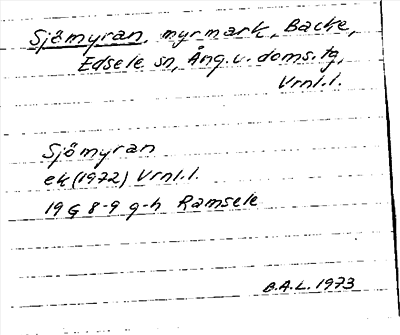 Sjömyran, myrmark, Backe,
Edsele sn, Ång.v. doms.tg,
Vrnl.l.
Sjömyran
ek (1972) Vrnl.l.
19 G 8-9 g-h Ramsele
B.A.L. 1973